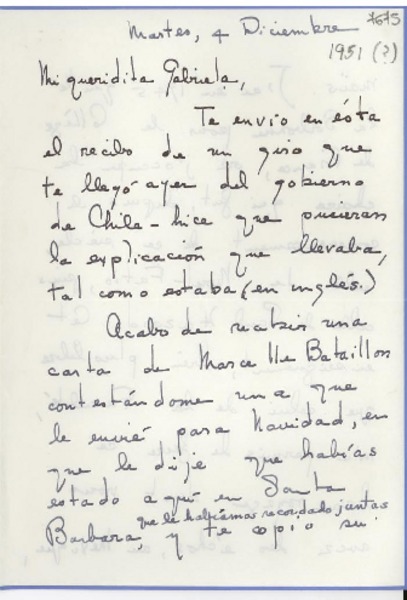 7675
Martes, 4 Diciembre
1951 (?)
Mi queridita Gabriela,
Te envío en ésta
el recibo de un giro que
te llegó ayer del gobierno
de Chile - hice que pusieran
la explicación que llevaba,
tal como estaba (en inglés.)
Acabo de recibir una
carta de Marcelle Bataillon
contestándome una que
le envié para Navidad, en
que le dije que habías
estado aquí en Santa
que le habíamos recordado juntas
Barbara, y te copio su